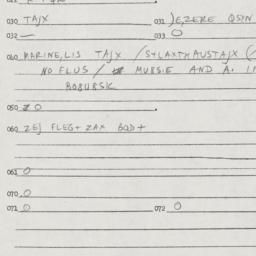 030 TAJX 031 JEZERE QSIN
032 — 033 O
040 MARINE, LIS TAJX /S+LAXTHAUSTAJX (
NO FLUS / MUBSIE AND A. I
ROBURSK
050 20
060 ZEJ FLEG+ ZAX BQD+
061 O
070 O
071 O 072 O